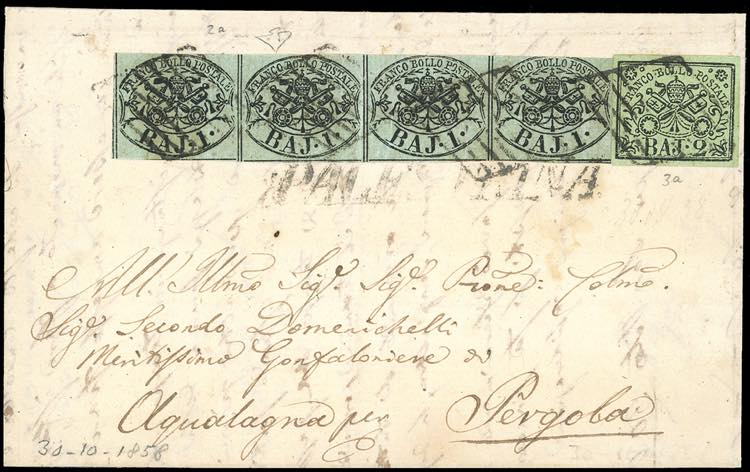 2a
FRANCO BOLLO POSTALE
BAJ. 1.
FRANCO BOLLO POSTALE
BAJ. 1.
FRANCO BOLLO POSTALE
BAJ. 1.
FRANCO BOLLO POSTALE
BAJ. 1.
FRANCO BOLLO POSTALE
BAJ. 2
3a
All' Illmo Sigr. Sigr. Prone: Colmo.
Sigr. Secondo Domenichelli
Meritissimo Gonfaloniere di
Aqualagna per Pergola
30-10-1858